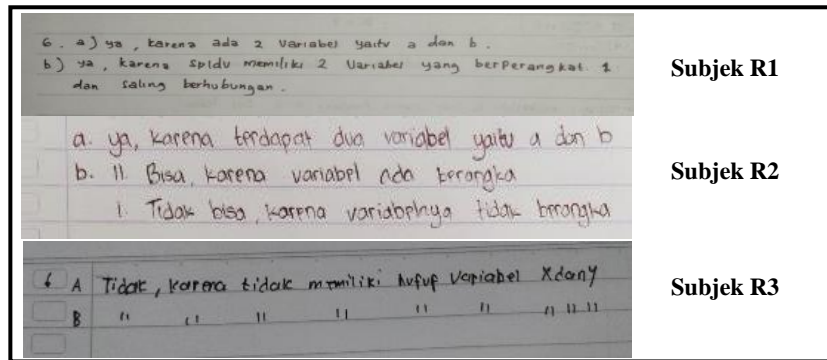 6. a) ya, karena ada 2 Variabel yaitu a dan b.
b) ya, karena spldv memiliki 2 Variabel yang berperangkat 1
dan saling berhubungan.
Subjek R1
a. ya, karena terdapat dua variabel yaitu a dan b
b. II. Bisa, karena variabel ada berangka
I. Tidak bisa, karena variabelnya tidak berangka
Subjek R2
6 A Tidak, karena tidak memiliki huruf variabel X dan Y
B " " " " " " " " "
Subjek R3